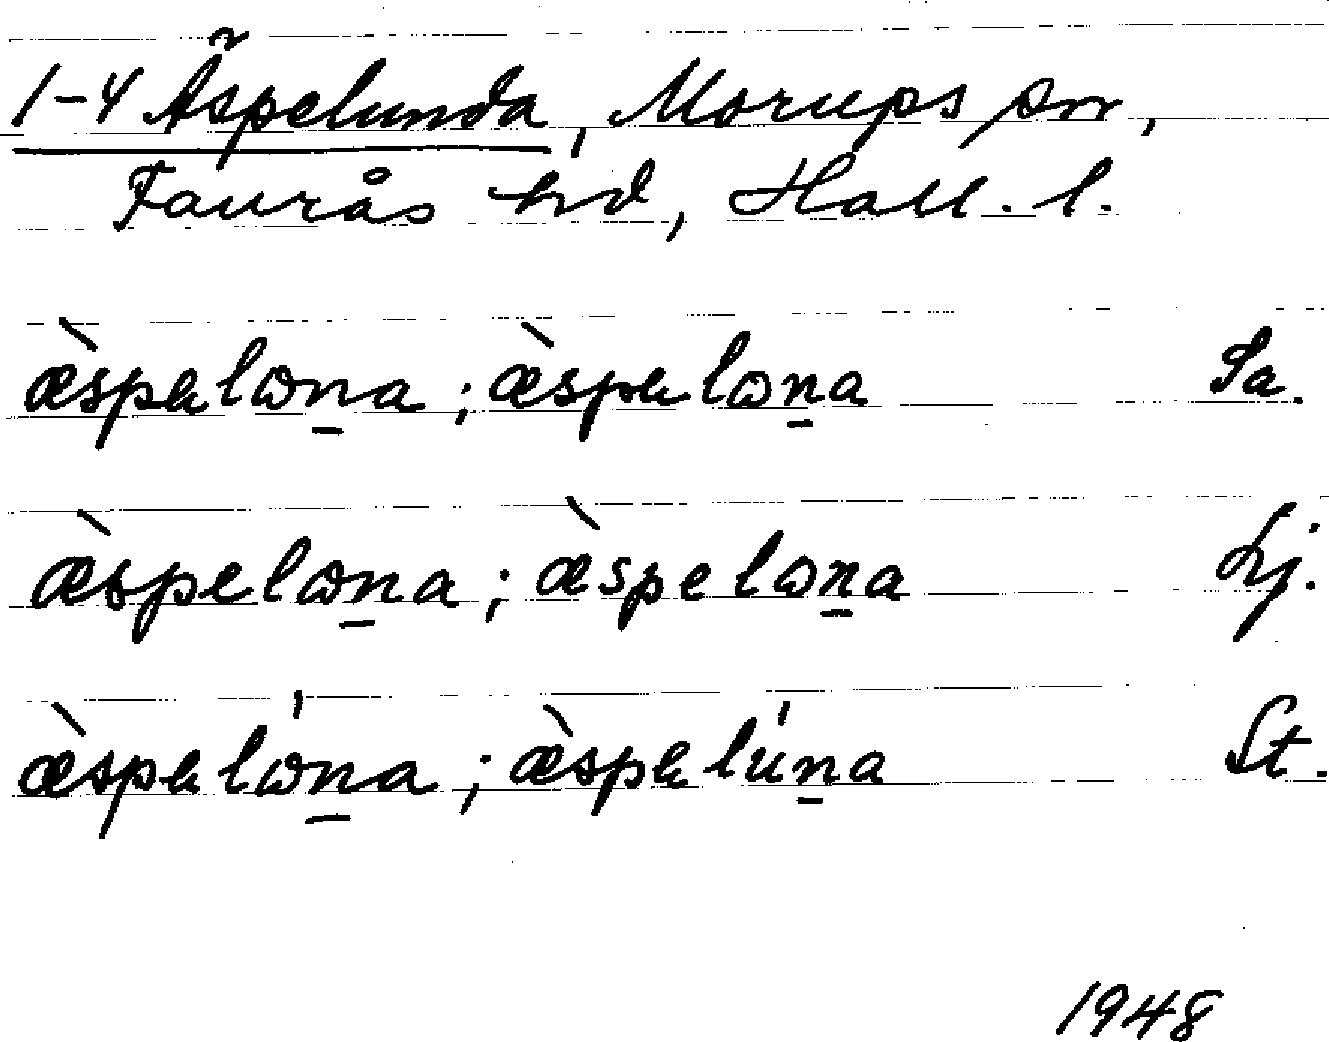 1-4 Äspelunda, Morups sn,
Faurås hd, Hall. l.
æ̀spəlωn̲a ; æ̀spəlωn̲a Sa.
æ̀spelωn̲a ; æ̀spelωn̲a Lj.
æ̀spəlώn̲a ; æ̀spəlún̲a St.
1948